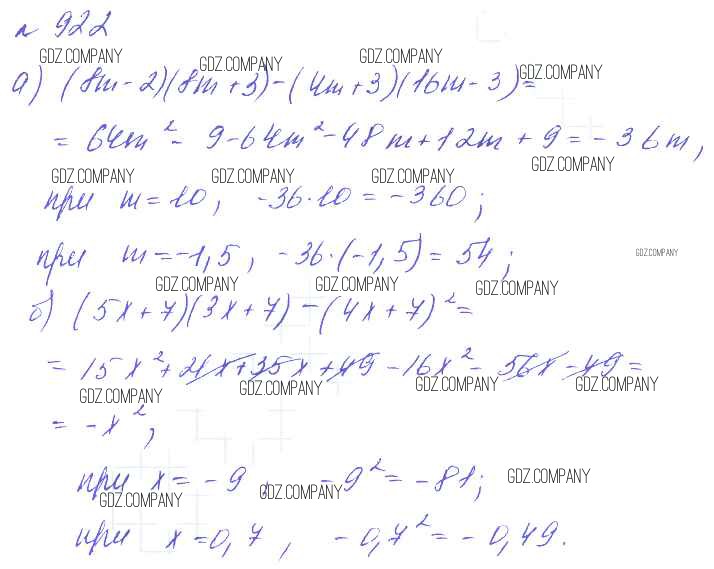 № 922
GDZ.COMPANY GDZ.COMPANY GDZ.COMPANY GDZ.COMPANY
а) (8m-2)(8m+3)-(4m+3)(16m-3)=
= 64m² - 9-64m²-48m+12m+9=-36m,
GDZ.COMPANY GDZ.COMPANY GDZ.COMPANY GDZ.COMPANY
при m=10, -36·10=-360;
при m=-1,5, -36·(-1,5)=54;
GDZ.COMPANY
GDZ.COMPANY GDZ.COMPANY GDZ.COMPANY
б) (5x+7)(3x+7)-(4x+7)²=
= 15x²+21x+35x+49-16x²-56x-49=
GDZ.COMPANY GDZ.COMPANY GDZ.COMPANY GDZ.COMPANY
= -x²;
при x=-9, -9²=-81;
GDZ.COMPANY GDZ.COMPANY GDZ.COMPANY
при x=0,7, -0,7²=-0,49.